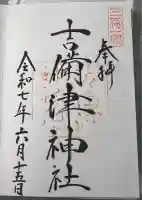 奉拝
吉備津神社
令和七年六月十五日